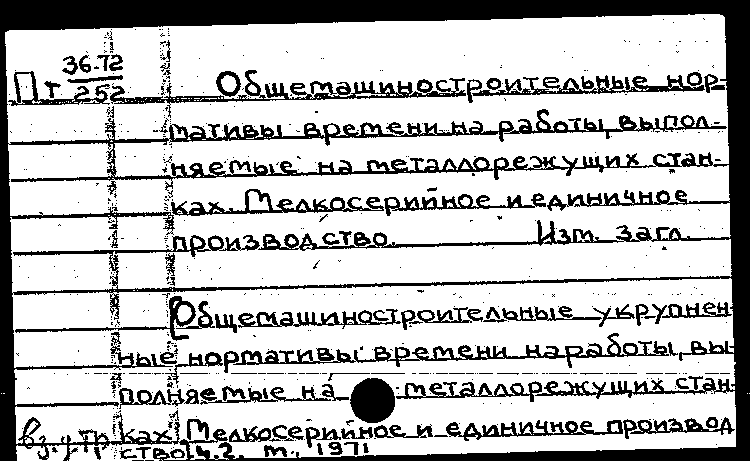 Пт 36-72/252 Общемашиностроительные нор-
мативы времени на работы, выпол-
няемые на металлорежущих стан-
ках. Мелкосерийное и единичное
производство. Изм. загл.
[Общемашиностроительные укрупнен-
ные нормативы времени на работы, вы-
полняемые на металлорежущих стан-
ках. Мелкосерийное и единичное производ
ство] ч.2. М., 1971